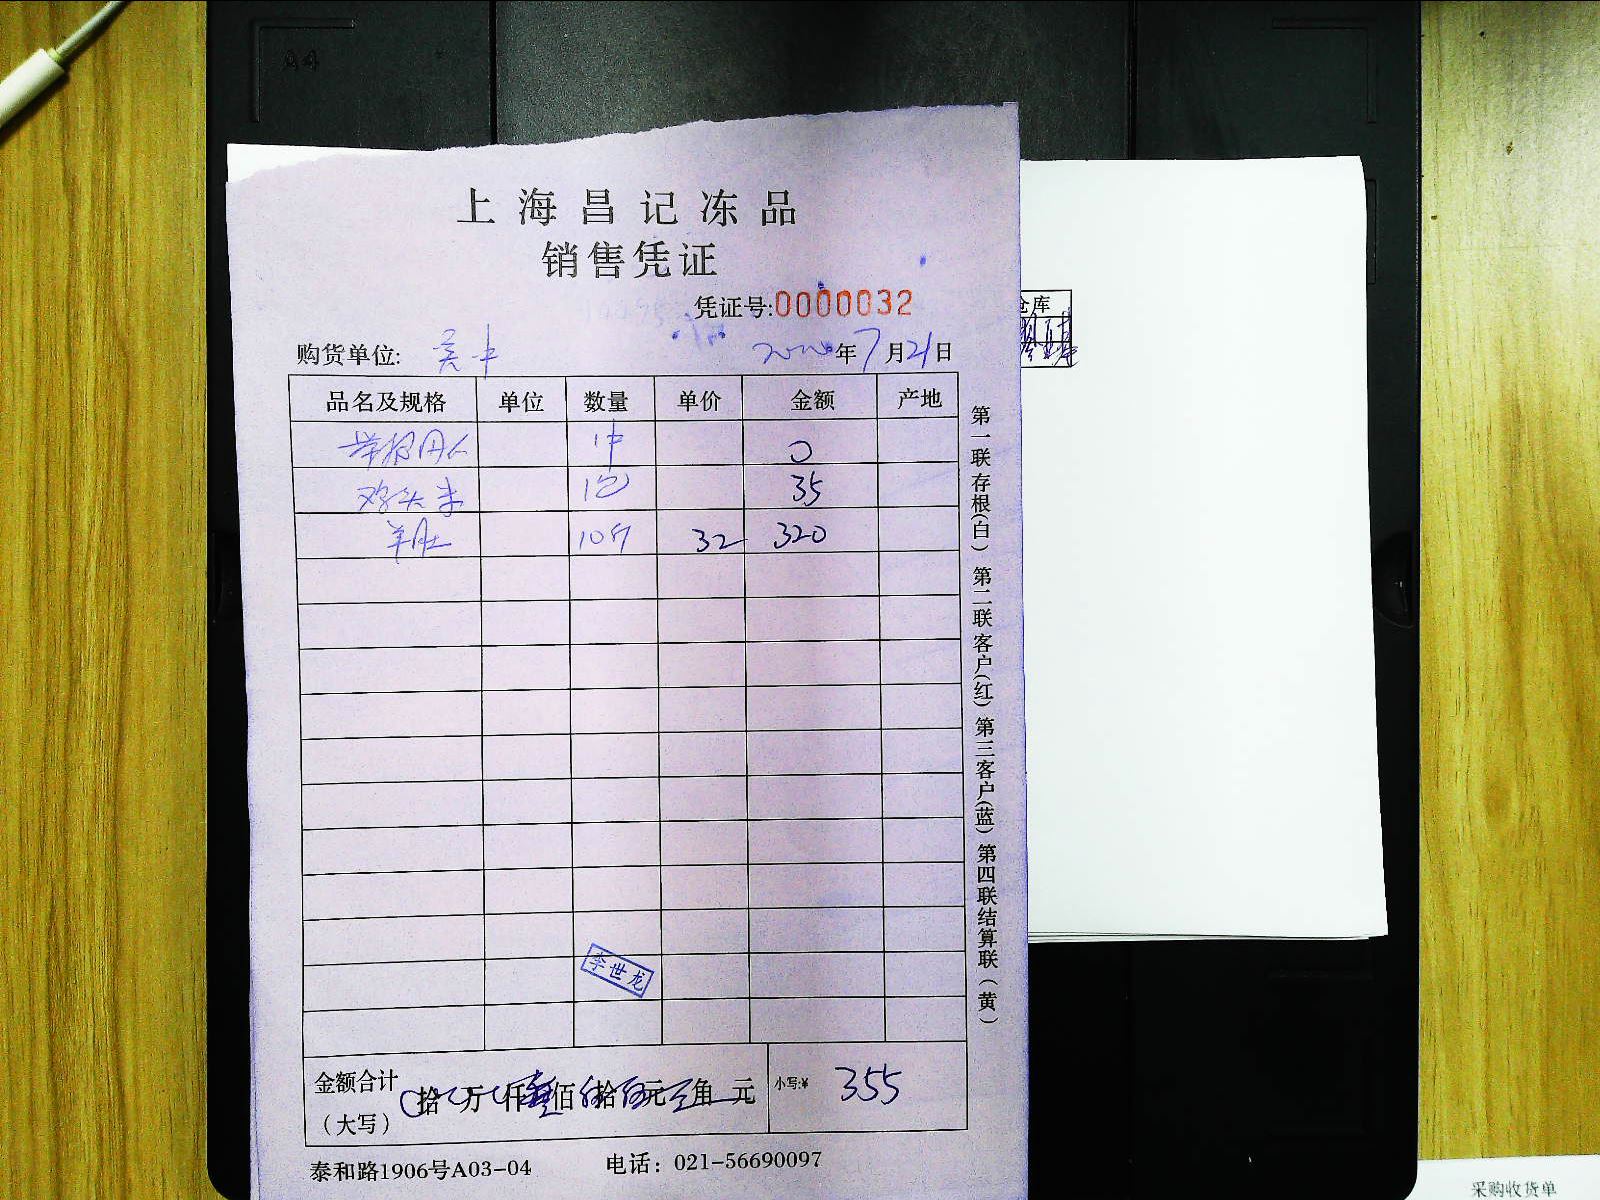 A4
上海昌记冻品
销售凭证
凭证号:0000032
仓库
购货单位: 吴中 2020年7月21日
品名及规格 单位 数量 单价 金额 产地
1中 0
鸡头米 1包 35
羊肚 10斤 32 320
第一联存根(白) 第二联客户(红) 第三客户(蓝) 第四联结算联(黄)
李世龙
金额合计 拾万仟叁佰伍拾伍元角元 小写:¥ 355
(大写)
泰和路1906号A03-04 电话:021-56690097
采购收货单